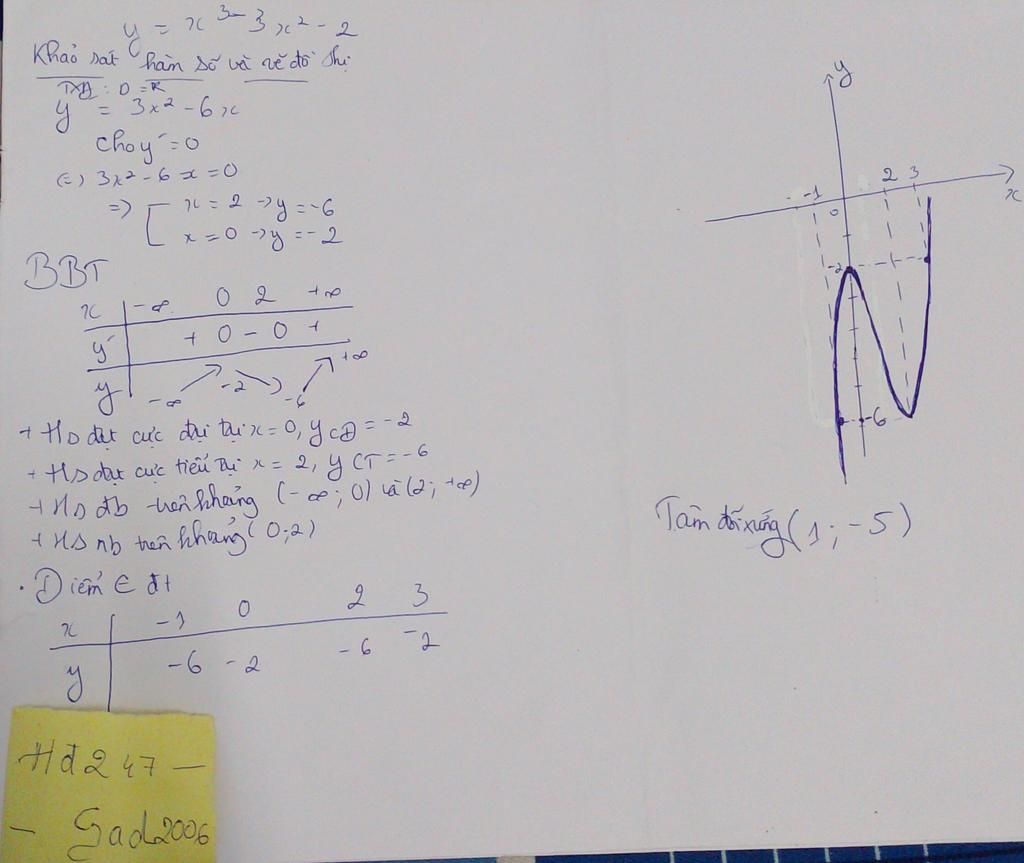 y = x³ - 3x² - 2
Khảo sát hàm số và vẽ đồ thị
TXĐ : D = R
y' = 3x² - 6x
Cho y' = 0
(=) 3x² - 6x = 0
=> [ x = 2 -> y = -6
x = 0 -> y = -2
BBT
x | -∞ 0 2 +∞
y' | + 0 - 0 +
y | -∞ -2 -6 +∞
+ HS đạt cực đại tại x = 0, yCĐ = -2
+ HS đạt cực tiểu tại x = 2, yCT = -6
+ HS đb trên khoảng (-∞; 0) và (2; +∞)
+ HS nb trên khoảng (0;2)
. Điểm ∈ đt
x | -1 0 2 3
y | -6 -2 -6 -2
Hđ247 -
- Gad2006
y
-1 2 3
0 x
-2
-6
Tâm đối xứng (1; -5)